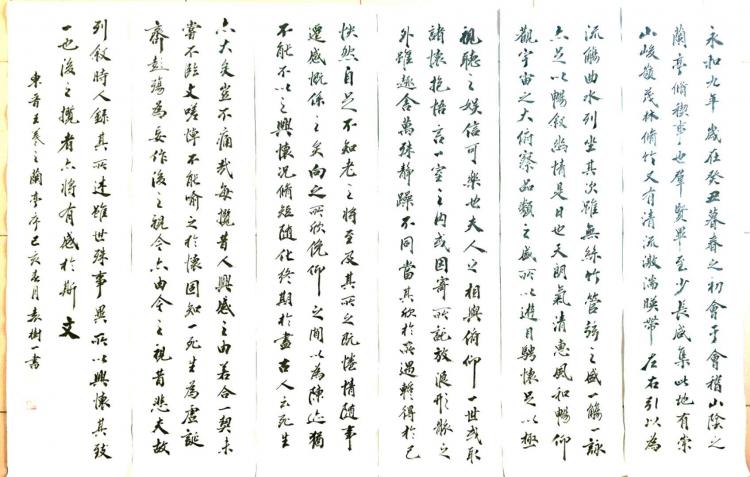 永和九年歲在癸丑暮春之初會于會稽山陰之
蘭亭脩稧事也羣賢畢至少長咸集此地有崇
山峻嶺茂林脩竹又有清流激湍暎帶左右引以為
流觴曲水列坐其次雖無絲竹管弦之盛一觴一詠
亦足以暢敘幽情是日也天朗氣清惠風和暢仰
觀宇宙之大俯察品類之盛所以遊目騁懷足以極
視聽之娛信可樂也夫人之相與俯仰一世或取
諸懷抱悟言一室之內或因寄所託放浪形骸之
外雖趣舍萬殊靜躁不同當其欣於所遇暫得於己
怏然自足不知老之將至及其所之既惓情隨事
遷感慨係之矣向之所欣俛仰之間以為陳迹猶
不能不以之興懷況脩短隨化終期於盡古人云死生
亦大矣豈不痛哉每攬昔人興感之由若合一契未
嘗不臨文嗟悼不能喻之於懷固知一死生為虛誕
齊彭殤為妄作後之視今亦由今之視昔悲夫故
列敘時人錄其所述雖世殊事異所以興懷其致
一也後之攬者亦將有感於斯文
東晉王羲之蘭亭序己亥春月袁樹一書